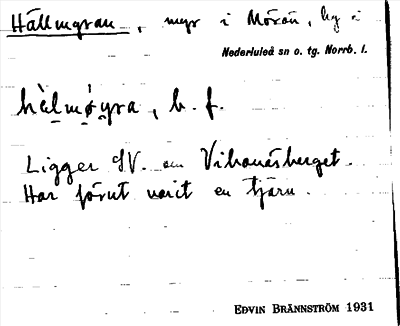 Hällmyran, myr i Mörön, by i
Nederluleå sn o. tg. Norrb. l.
hèlmøyra, b. f.
Ligger SV. om Vibonäsberget.
Har förut varit en tjärn.
EDVIN BRÄNNSTRÖM 1931